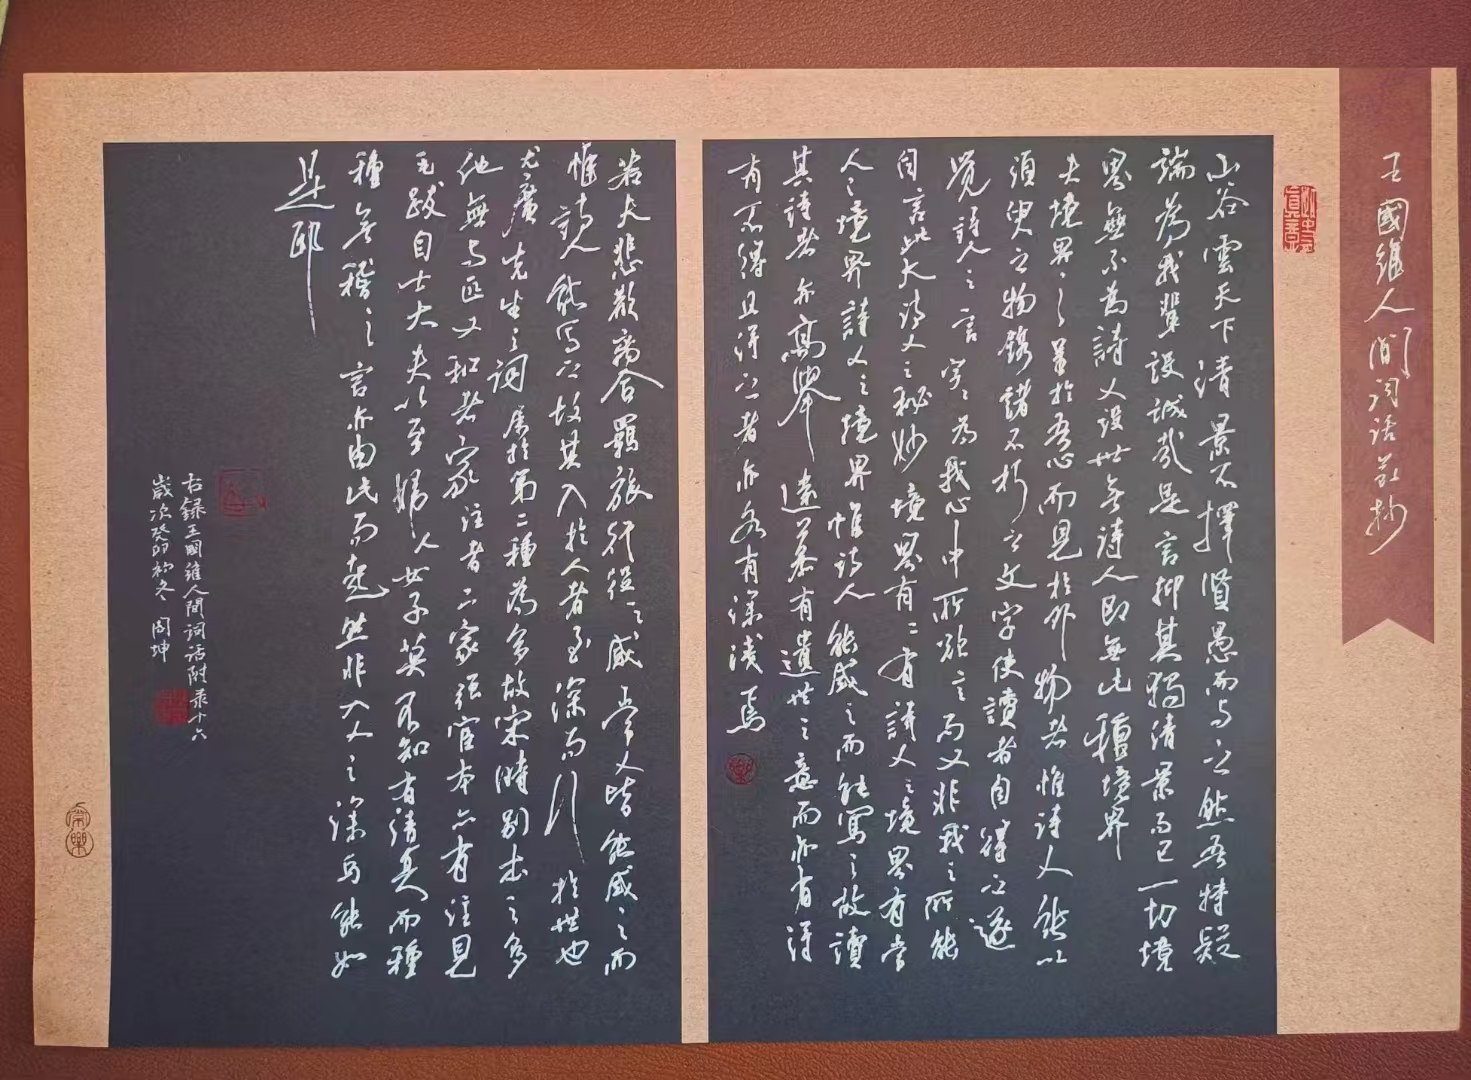 王國維人間词话节抄
山谷雲天下清景不擇賢愚而与之然吾特疑
端為我輩設誠哉是言抑其獨清景而已一切境
界無不為詩人設世無詩人即無此種境界
夫境界之呈於吾心而見於外物者惟詩人能以
須臾之物鎸諸不朽之文字使讀者自得之遂
覺詩人之言字字為我心中所欲言而又非我之所能
自言此大詩人之秘妙境界有二有詩人之境界有常
人之境界詩人之境界惟詩人能感之而能寫之故讀
其詩者亦高舉遠慕有遺世之意而亦有得
有不得且得之者亦各有深淺焉
若夫悲歡离合羈旅行役之感常人皆能感之而
惟詩人能写之故其入於人者至深而行於世也
尤廣先生之词属於第二種為多故宋時别本之多
他無与匹又和者家注者二家强宦本亦有注見
毛跋自士大夫以至婦人女子莫不知有清真而種
種無稽之言亦由此而起然非入人之深与能如
是邪
右録王國維人間詞話附录十六
歲次癸卯初冬周坤